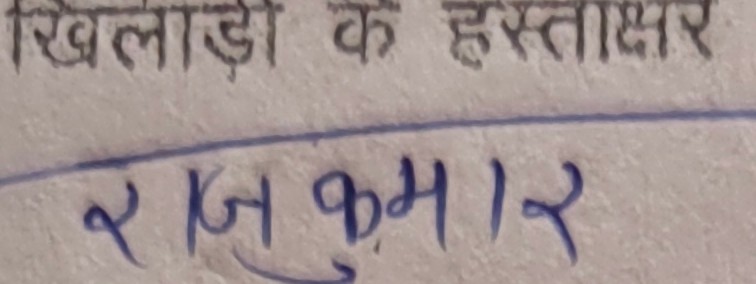 खिलाड़ी के हस्ताक्षर
राजकुमार